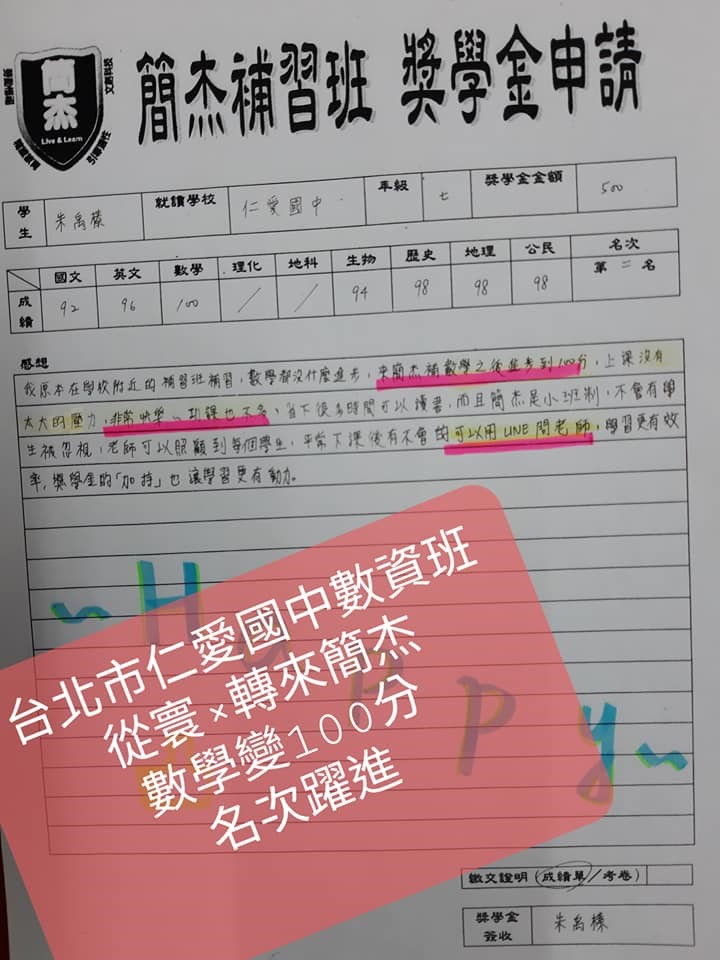 簡杰補習班 獎學金申請
簡杰
Live & Learn
學生 朱禹榛 就讀學校 仁愛國中 年級 七 獎學金金額 500
國文 英文 數學 理化 地科 生物 歷史 地理 公民 名次
成績 92 96 100 / / 94 98 98 98 第二名
感想
我原本在學校附近的補習班補習,數學都沒什麼進步,來簡杰補數學之後進步到100分,上課沒有
太大的壓力,非常快樂~功課也不多,省下很多時間可以讀書,而且簡杰是小班制,不會有學
生被忽視,老師可以照顧到每個學生,平常下課後有不會的可以用LINE問老師,學習更有效
率,獎學金的「加持」也讓學習更有動力。
~Happy~
台北市仁愛國中數資班
從寰×轉來簡杰
數學變100分
名次躍進
繳交證明(成績單/考卷)
獎學金簽收 朱禹榛